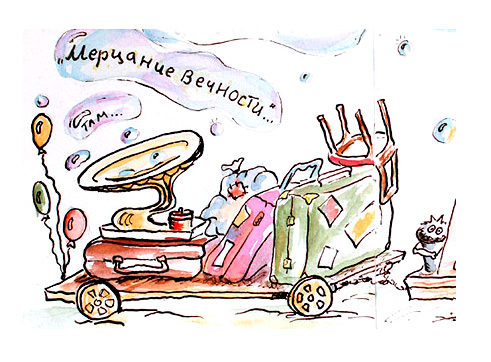 „Мерцание Вечности..."
ТАМ...